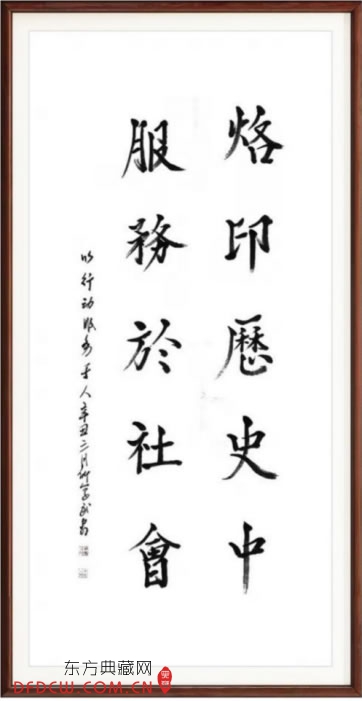 烙印歷史中
服務於社會
以行动服务于人辛丑三月
东方典藏网
DFDCW.COM.CN